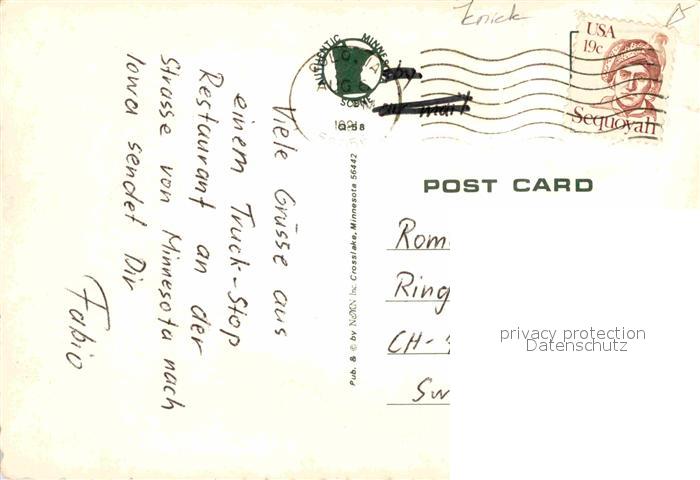 Viele Grüsse aus
einem Truck-Stop
Restaurant an der
Strasse von Minnesota nach
Iowa sendet Dir
Fabio
Knick
AUTHENTIC MINNESOTA SCENE
G-58
Pub. & © by NoKN Inc. Crosslake, Minnesota 56442
USA
19c
Sequoyah
POST CARD
Rom
Ring
CH-
Sw
privacy protection
Datenschutz